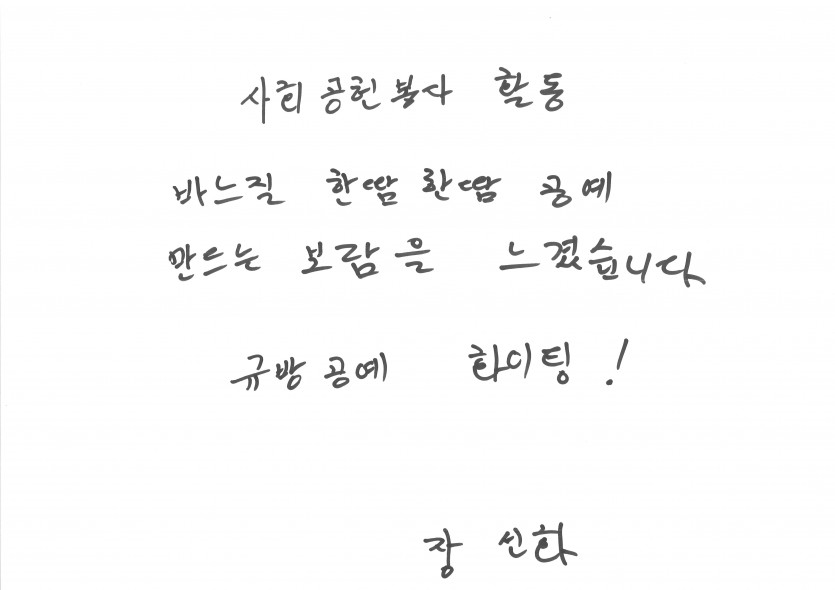 사회 공헌 봉사 활동
바느질 한땀 한땀 공예
만드는 보람을 느꼈습니다
규방 공예 화이팅!
장 선화